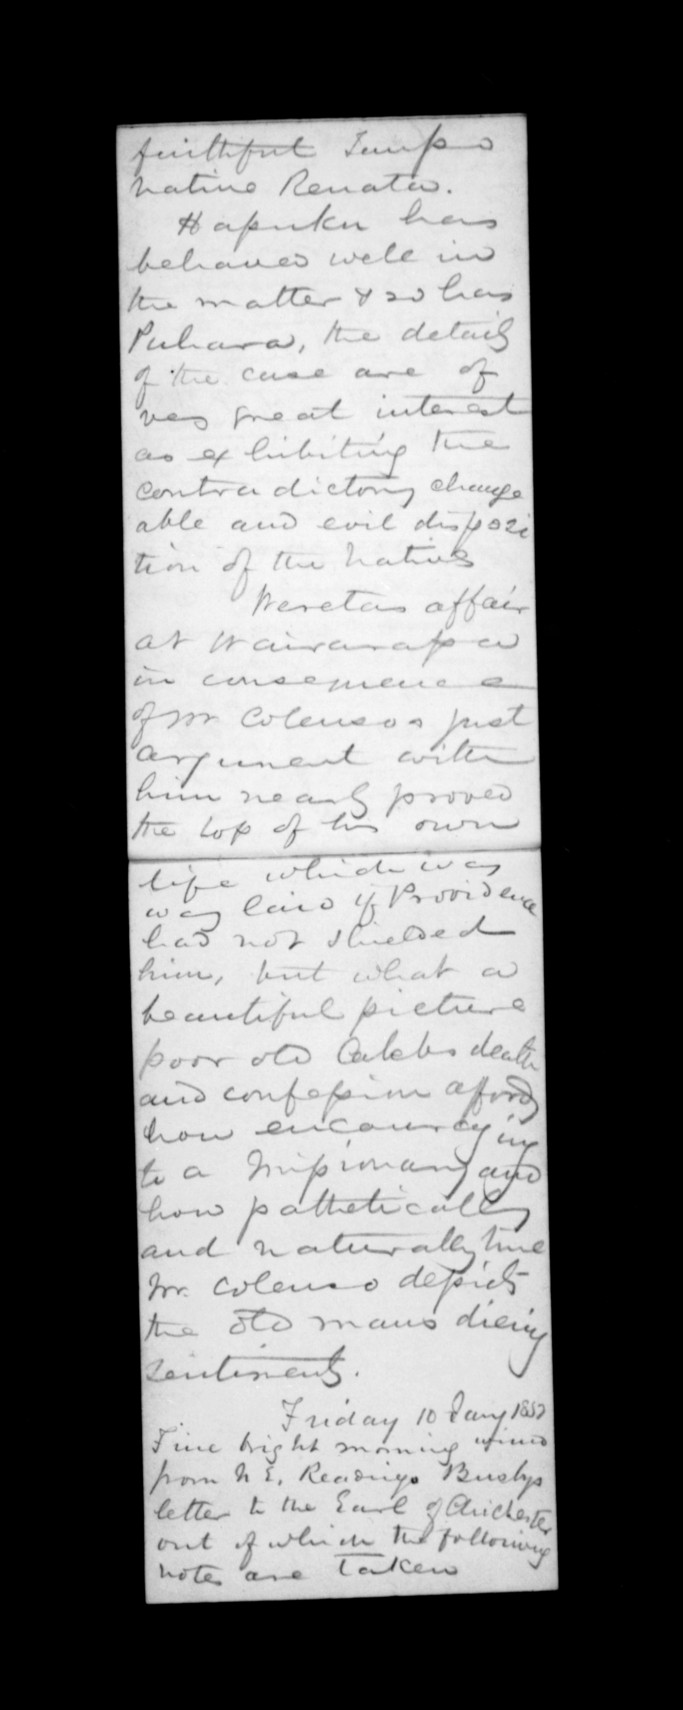 faithful
native Renata.
Hapuku has
behaved well in
the matter & so has
Puhara, the details
of the case are of
very great interest
as exhibiting the
contradictory change
able and evil disposi
tion of the Natives
Weretas affair
at Wairarapa
in consequence
of Mr Colensos just
argument with
him nearly proved
the loss of his own
life which was
way laid if Providence
had not shielded
him, but what a
beautiful picture
poor old Calebs death
and confession affords
how encouraging
to a Missionary and
how pathetically
and naturally true
Mr. Colenso depicts
the old mans dieing
sentiments.
Friday 10 Jany 1852
Fine bright morning wind
from N E. Readings Busbys
letter to the Earl of Chichester
out of which the following
notes are taken